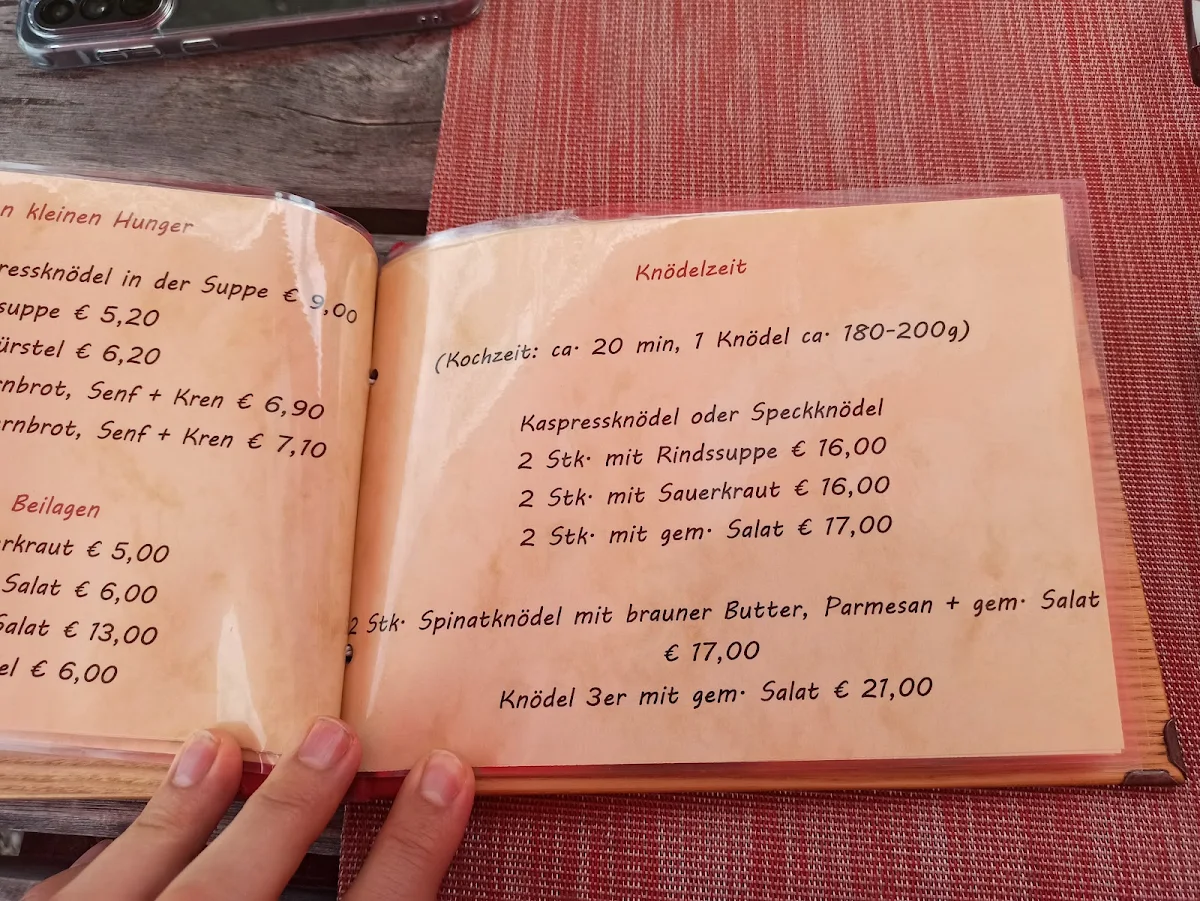 kleinen Hunger
in der Suppe € 9,00
€ 5,20
€ 6,20
Senf + Kren € 6,90
Senf + Kren € 7,10
Beilagen
€ 5,00
Salat € 6,00
€ 13,00
€ 6,00
Knödelzeit
(Kochzeit: ca. 20 min, 1 Knödel ca. 180-200g)
Kaspressknödel oder Speckknödel
2 Stk. mit Rindssuppe € 16,00
2 Stk. mit Sauerkraut € 16,00
2 Stk. mit gem. Salat € 17,00
2 Stk. Spinatknödel mit brauner Butter, Parmesan + gem. Salat
€ 17,00
Knödel 3er mit gem. Salat € 21,00